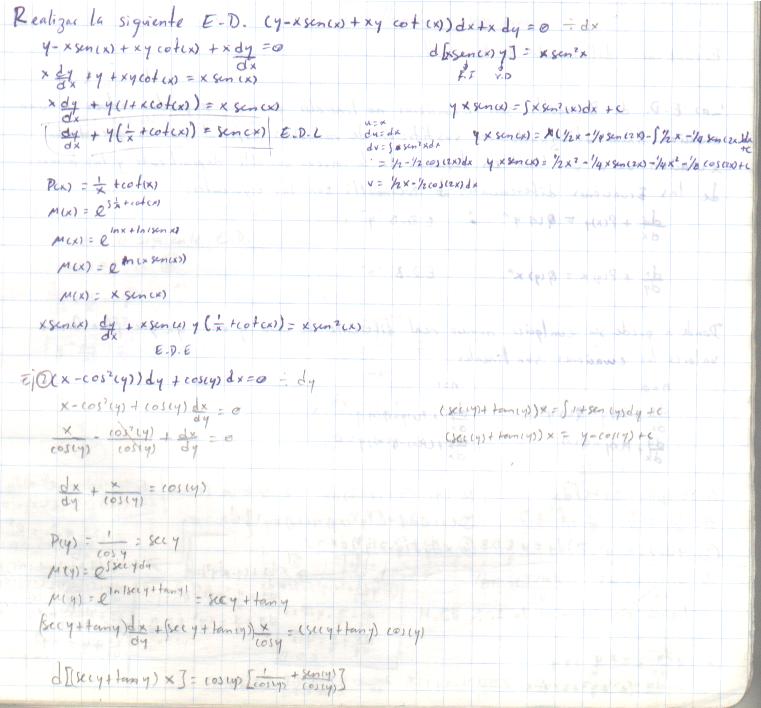 Realizar la siguiente E.D. (y-xsen(x)+xy cot(x))dx+x dy=0 ÷dx
y-xsen(x)+xycot(x)+x dy/dx=0
x dy/dx +y+xycot(x)=xsen(x)
x dy/dx + y(1+xcot(x))=xsen(x)
dy/dx + y(1/x+cot(x))=sen(x) E.D.L
P(x)=1/x+cot(x)
M(x)=e^∫1/x+cot(x)
M(x)=e^lnx+ln(senx)
M(x)=e^ln(xsen(x))
M(x)=xsen(x)
xsen(x) dy/dx + xsen(x) y(1/x+cot(x))=xsen²(x)
E.D.E
d[xsen(x)y]=xsen²x
F.I V.D
yxsen(x)=∫xsen²(x)dx+c
u=x
du=dx
dv=∫sen²xdx
=1/2-1/2cos(2x)dx
v=1/2x-1/2cos(2x)dx
yxsen(x)=x(1/2x-1/4sen(2x)-∫1/2x-1/4sen(2x)dx+c
yxsen(x)=1/2x²-1/4xsen(2x)-1/4x²-1/8cos(2x)+c
Ej② (x-cos²(y))dy+cos(y)dx=0 ÷dy
x-cos²(y)+cos(y)dx/dy=0
x/cos(y) - cos²(y)/cos(y) + dx/dy=0
dx/dy + x/cos(y)=cos(y)
P(y)=1/cosy=secy
M(y)=e^∫secydy
M(y)=e^ln|secy+tany|=secy+tany
(secy+tany)dx/dy+(secy+tany)x/cosy=(secy+tany)cos(y)
d[(secy+tany)x]=cos(y)[1/cos(y)+sen(y)/cos(y)]
(sec(y)+tan(y))x=∫1+sen(y)dy+c
(sec(y)+tan(y))x=y-cos(y)+c